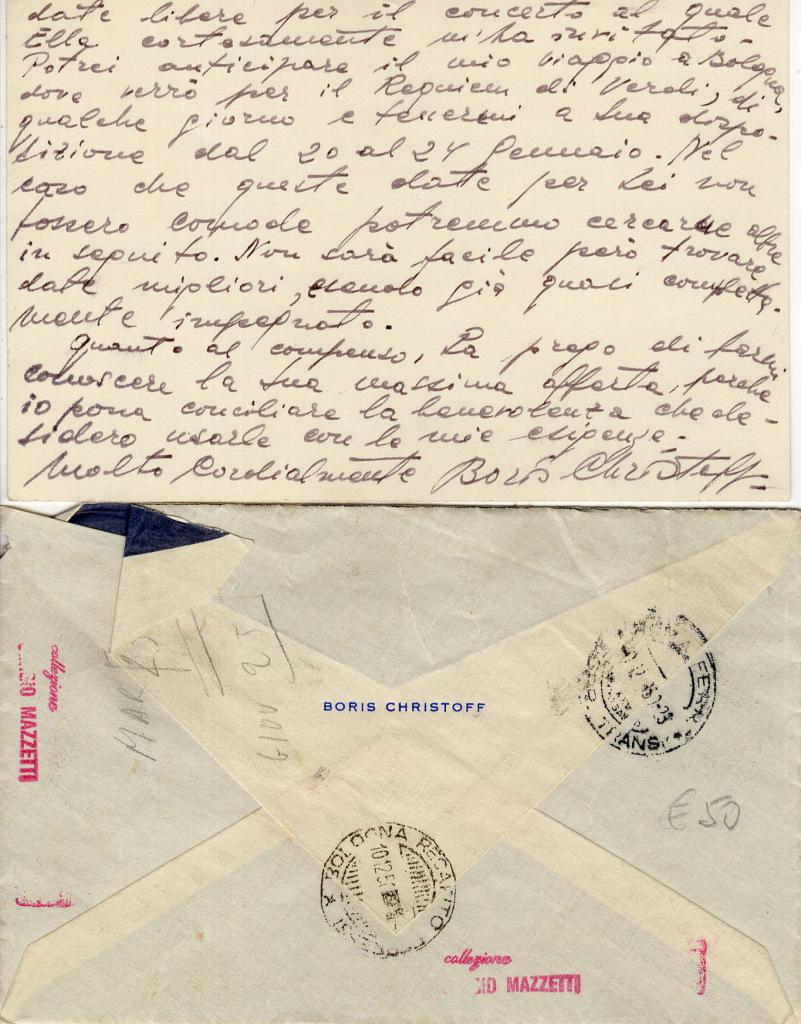 date libere per il concerto al quale
Ella cortesamente m'ha invitato.
Potrei anticipare il mio viaggio a Bologna,
dove verrò per il Requiem di Verdi, di
qualche giorno e tenermi a Sua dispo-
sizione dal 20 al 24 Gennaio. Nel
caso che queste date per Lei non
fossero comode potremmo cercarne altre
in seguito. Non sarà facile però trovare
date migliori, essendo già quasi completa-
mente impegnato.
Quanto al compenso, La prego di farmi
conoscere la Sua massima offerta, perché
io possa conciliare la benevolenza che de-
sidero usarle con le mie esigenze.
Molto Cordialmente Boris Christoff
BORIS CHRISTOFF
MAR
GIOV 25
collezione
MAZZETTI
FERR
TRANS
€ 50
BOLOGNA RECAPITO
10.12.5
collezione
MAZZETTI